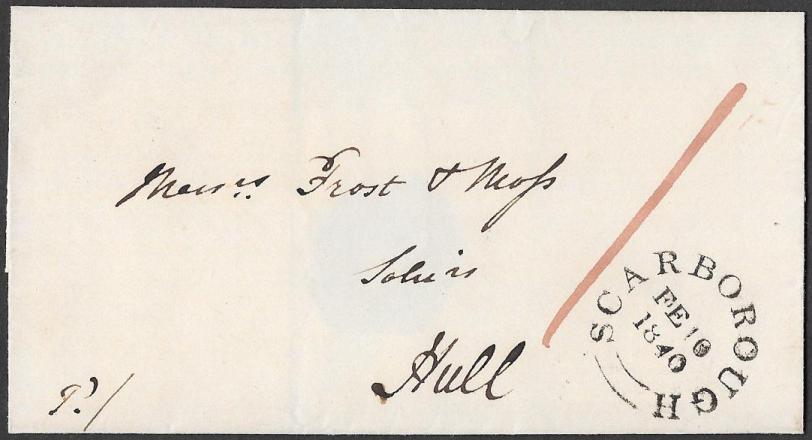 Messrs. Frost & Moss
Solrs
Hull
Pd/
SCARBOROUGH
FE 10
1840